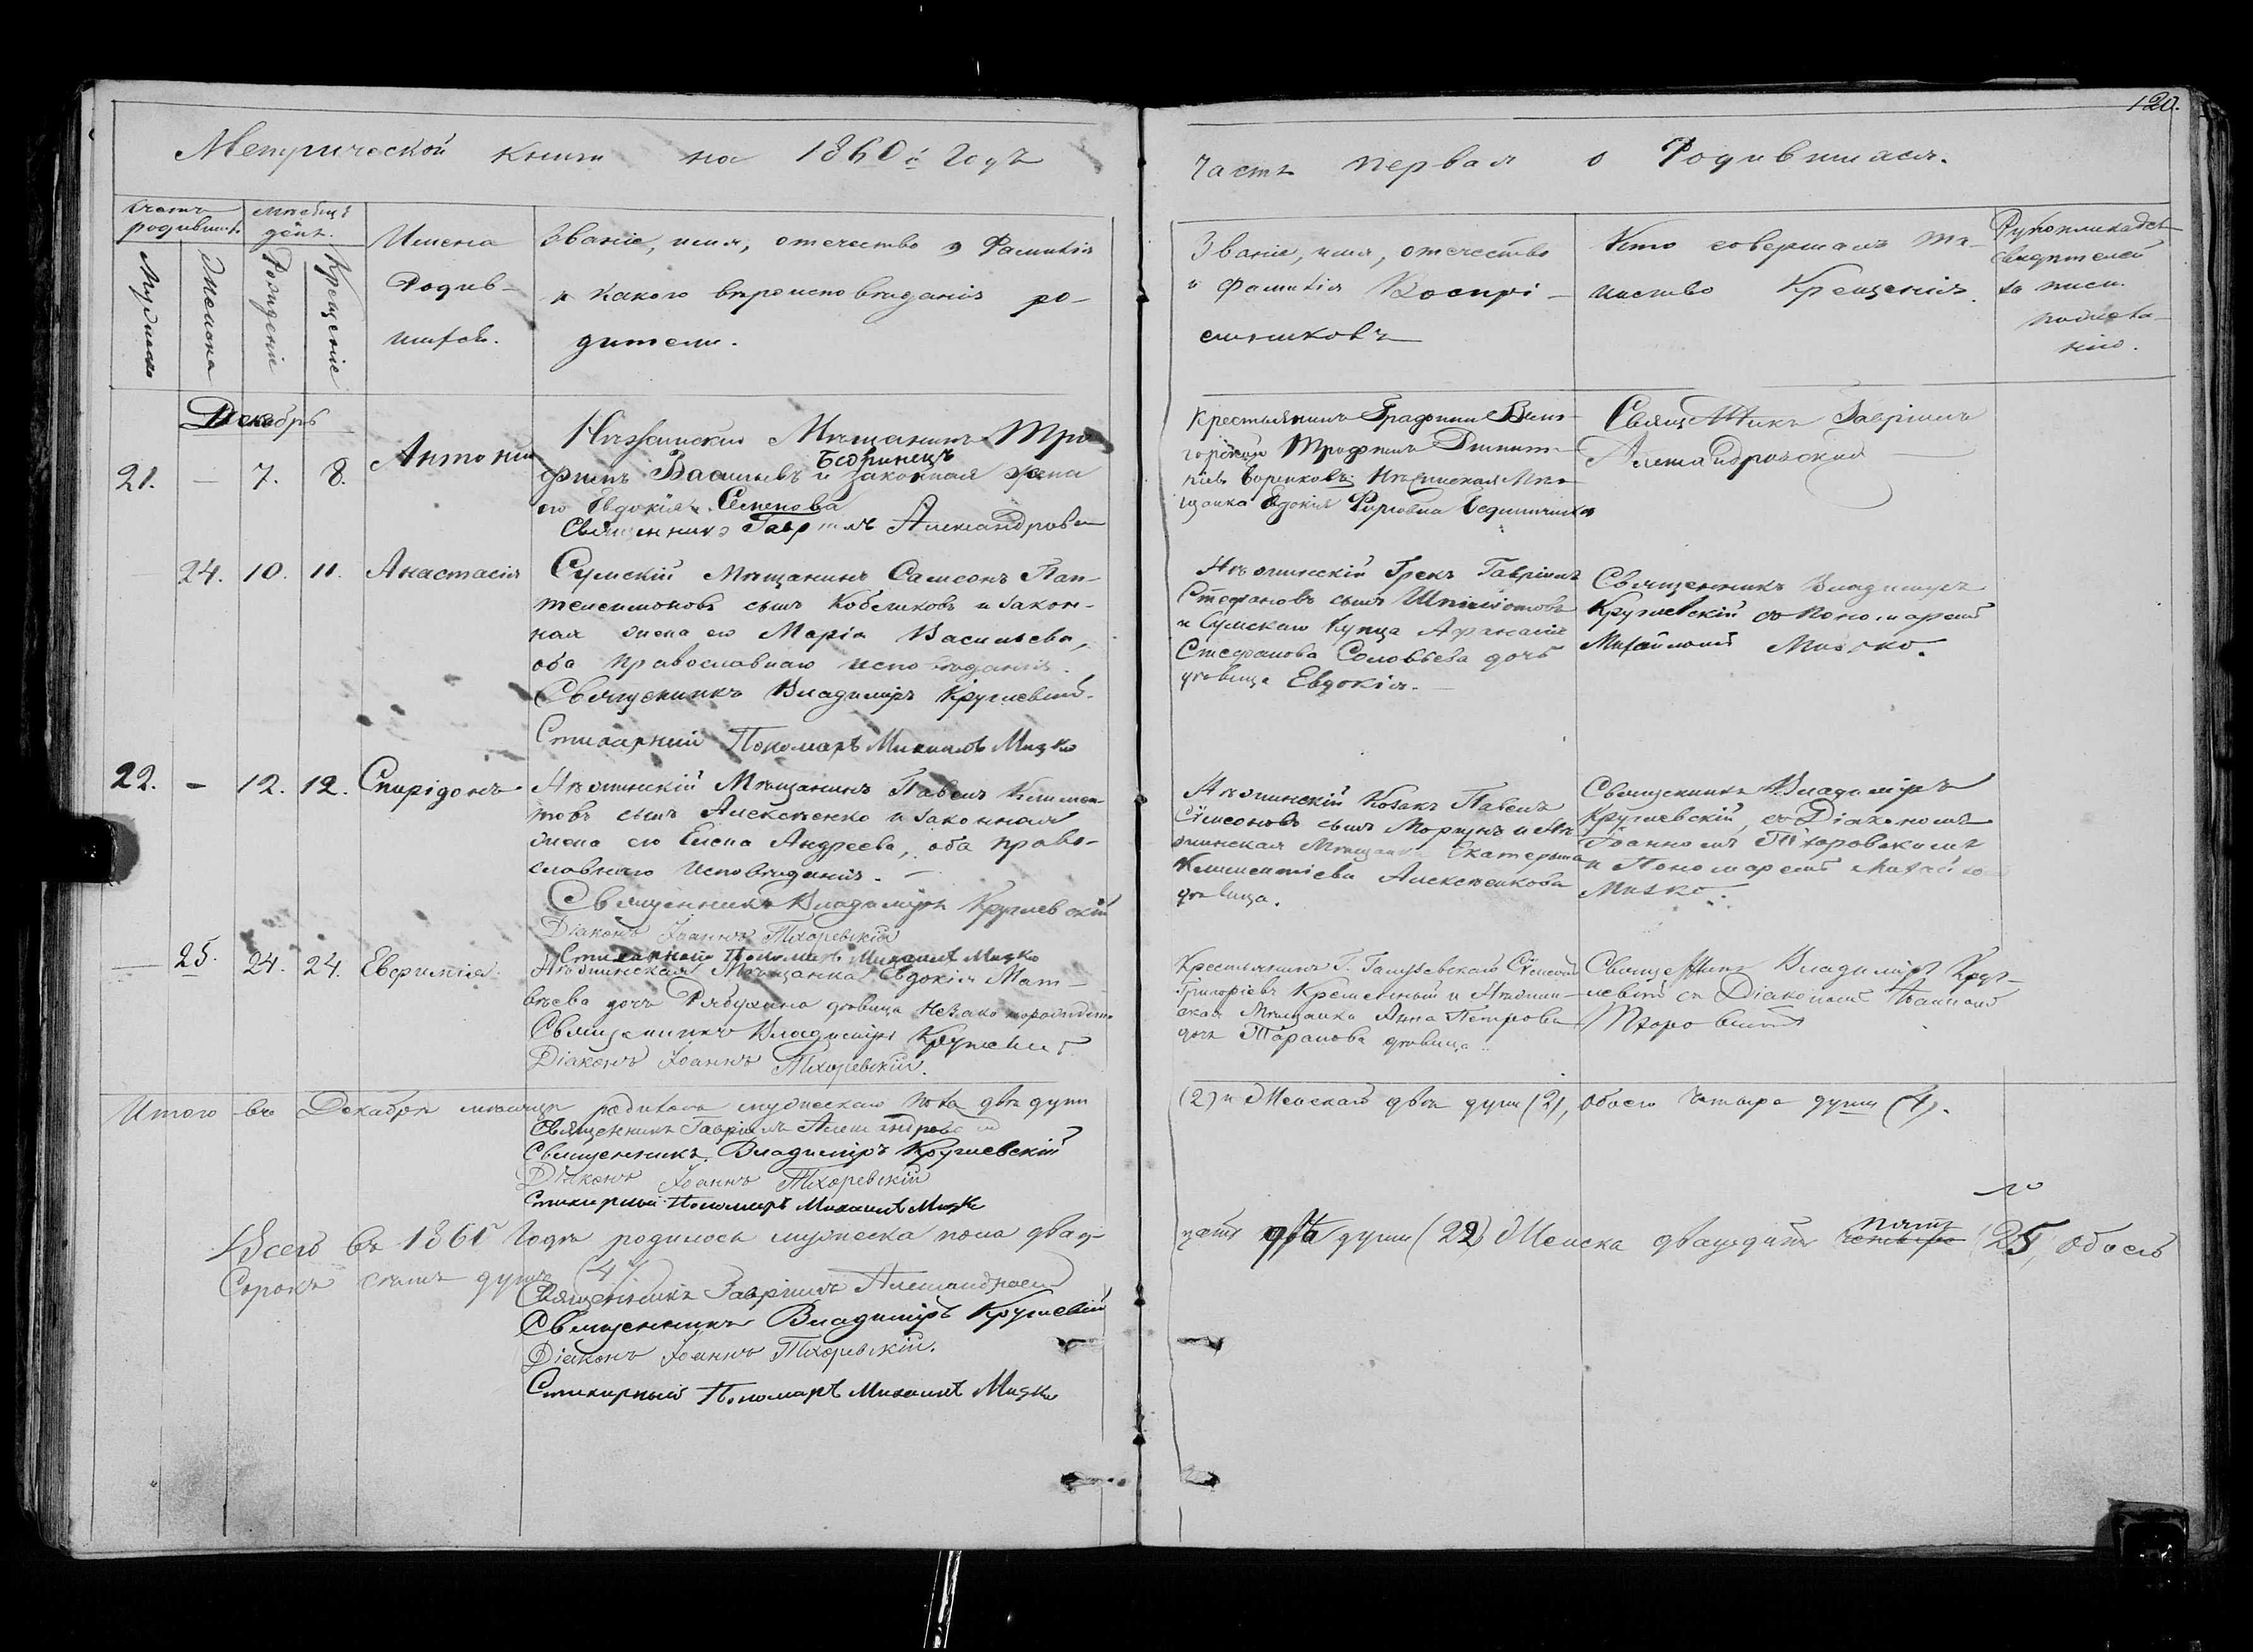 120.
Метрической книги на 1860й Годъ
часть первая о Родившихся.
счетъ родившихся
мѣсяцъ день.
Мужеска
Женска
Рожденіе
Крещеніе
Имена
Родив-
шихся.
Званіе, имя, отечество и Фамилія
и какого вѣроисповѣданія ро-
дители.
Званіе, имя, отечество
и фамилія Воспрі-
емниковъ
Кто совершалъ та-
инство Крещенія.
Рукоприкладст
свидѣтелей
записи
по желa-
нію.
Декабрь
21. — 7. 8. Антоній
Нѣжинскій Мѣщанинъ Тро-
фимъ Васильевъ Бедринецъ и законная жена
его Евдокія Семенова
Священникъ Гавріилъ Александров
Крестьянинъ
Трофимъ
Нѣжинская Мѣ-
щанка Евдокія
Священникъ Гавріилъ
Александровскій
24. 10. 11. Анастасія
Сумскій Мѣщанинъ Самсонъ Пан-
телеимоновъ сынъ Кобеликовъ и закон-
ная жена его Марія Васильева,
оба православнаго исповѣданія.
Священникъ Владиміръ Кругlевскій
Стихарный Пономарь Михаилъ Мизко
Нѣжинскій Грекъ Гавріилъ
Стефановъ сынъ
и Сумскаго Купца Афанасія
Стефанова Соловьева дочь
дѣвица Евдокія.
Священникъ Владиміръ
Круглевскій съ пономаремъ
Михаиломъ Мизко.
22. — 12. 12. Спиридонъ
Нѣжинскій Мѣщанинъ Павелъ Климен-
товъ сынъ Алексѣенко и законная
жена его Елена Андреева, оба право-
славнаго исповѣданія.
Священникъ Владиміръ Круглевскій
Діаконъ Іоаннъ Тихоревскій
Стихарный Пономарь Михаилъ Мизко
Нѣжинскій Козакъ Павелъ
Сѵмеоновъ сынъ Моргунъ и Нѣ-
жинская Мѣщанка Екатерина
Климентіева Алексѣенкова
дѣвица.
Священникъ Владиміръ
Круглевскій, съ Діакономъ
Іоанномъ Тихоровскимъ
и Пономаремъ Михайло
Мизко.
— 25. 24. 24. Евфимія.
Нѣжинская Мѣщанка Евдокія Мат-
вѣева дочь Рябухина дѣвица незаконорожден.
Священникъ Владиміръ Круглевскій
Діаконъ Іоаннъ Тихоревскій.
Крестьянинъ Г. Сѵмеонъ
Григоріевъ Кременный и Нѣжин-
ская Мѣщанка Анна Петрова
дочь Таранова дѣвица.
Священникъ Владиміръ Круг-
левскій съ Діакономъ Іоанномъ
Тихоровскимъ
Итого въ Декабрѣ мѣсяцѣ родилось мужескаго пола двѣ души
(2) и Женскаго двѣ души (2), обоего четыре души (4).
Священникъ Гавріилъ Александровскій
Священникъ Владиміръ Круглевскій
Діаконъ Іоаннъ Тихоревскій
Стихарный Пономарь Михаилъ Мизко
Всего въ 1860 Годѣ родилось мужеска пола двад-
цать двѣ души (22) Женска двадцать четыре пять (25, обоего
Сорокъ семь душъ (47)
Священникъ Гавріилъ Александровскій
Священникъ Владиміръ Круглевскій
Діаконъ Іоаннъ Тихоревскій.
Стихарный Пономарь Михаилъ Мизко